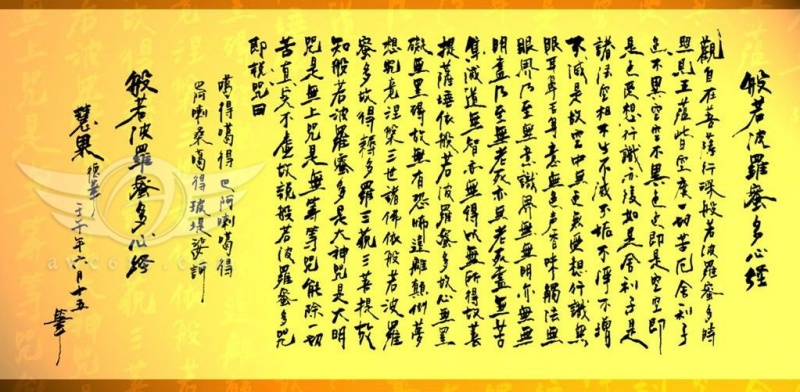 般若波羅蜜多心經
觀自在菩薩行深般若波羅蜜多時
照見五蘊皆空度一切苦厄舍利子
色不異空空不異色色即是空空即
是色受想行識亦復如是舍利子是
諸法空相不生不滅不垢不淨不增
不減是故空中無色無受想行識無
眼耳鼻舌身意無色聲香味觸法無
眼界乃至無意識界無無明亦無無
明盡乃至無老死亦無老死盡無苦
集滅道無智亦無得以無所得故菩
提薩埵依般若波羅蜜多故心無罣
礙無罣礙故無有恐怖遠離顛倒夢
想究竟涅槃三世諸佛依般若波羅
蜜多故得耨多羅三藐三菩提故
知般若波羅蜜多是大神咒是大明
咒是無上咒是無等等咒能除一切
苦真實不虛故說般若波羅蜜多咒
即說咒曰
噶得噶得 巴阿喇噶得
巴阿喇桑噶得 玻堤娑訶
般若波羅蜜多心經
慧果
壬午年六月十五
華